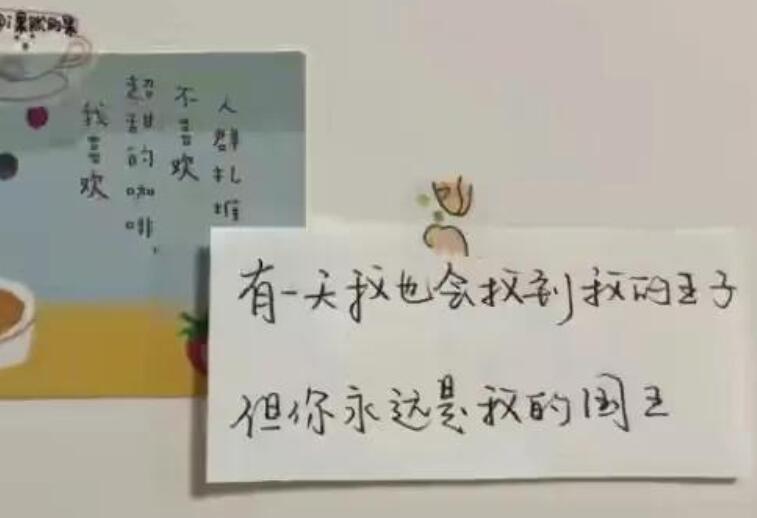 我喜欢
超甜的咖啡，
不喜欢
人群扎堆
有一天我也会找到我的王子
但你永远是我的国王